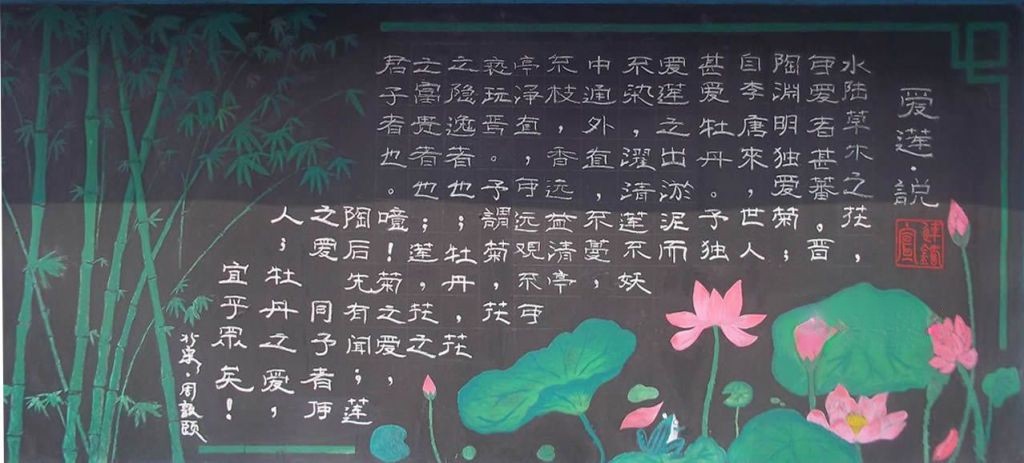 爱莲·説
水陆草木之花，
可爱者甚蕃。晋
陶渊明独爱菊；
自李唐來，世人
甚爱牡丹。予独
爱莲之出淤泥而
不染，濯清莲不妖
中通外直，不蔓；
不枝，香远益清亭，
亭净直，可远观不可
亵玩焉。予謂菊，花
之隐逸者也；牡丹，花
之富贵者也；莲，花之
君子者也。噫！菊之爱，
陶后先有闻；莲
之爱 同予者何
人；牡丹之爱，
宜乎眾矣！
北宋·周敦颐